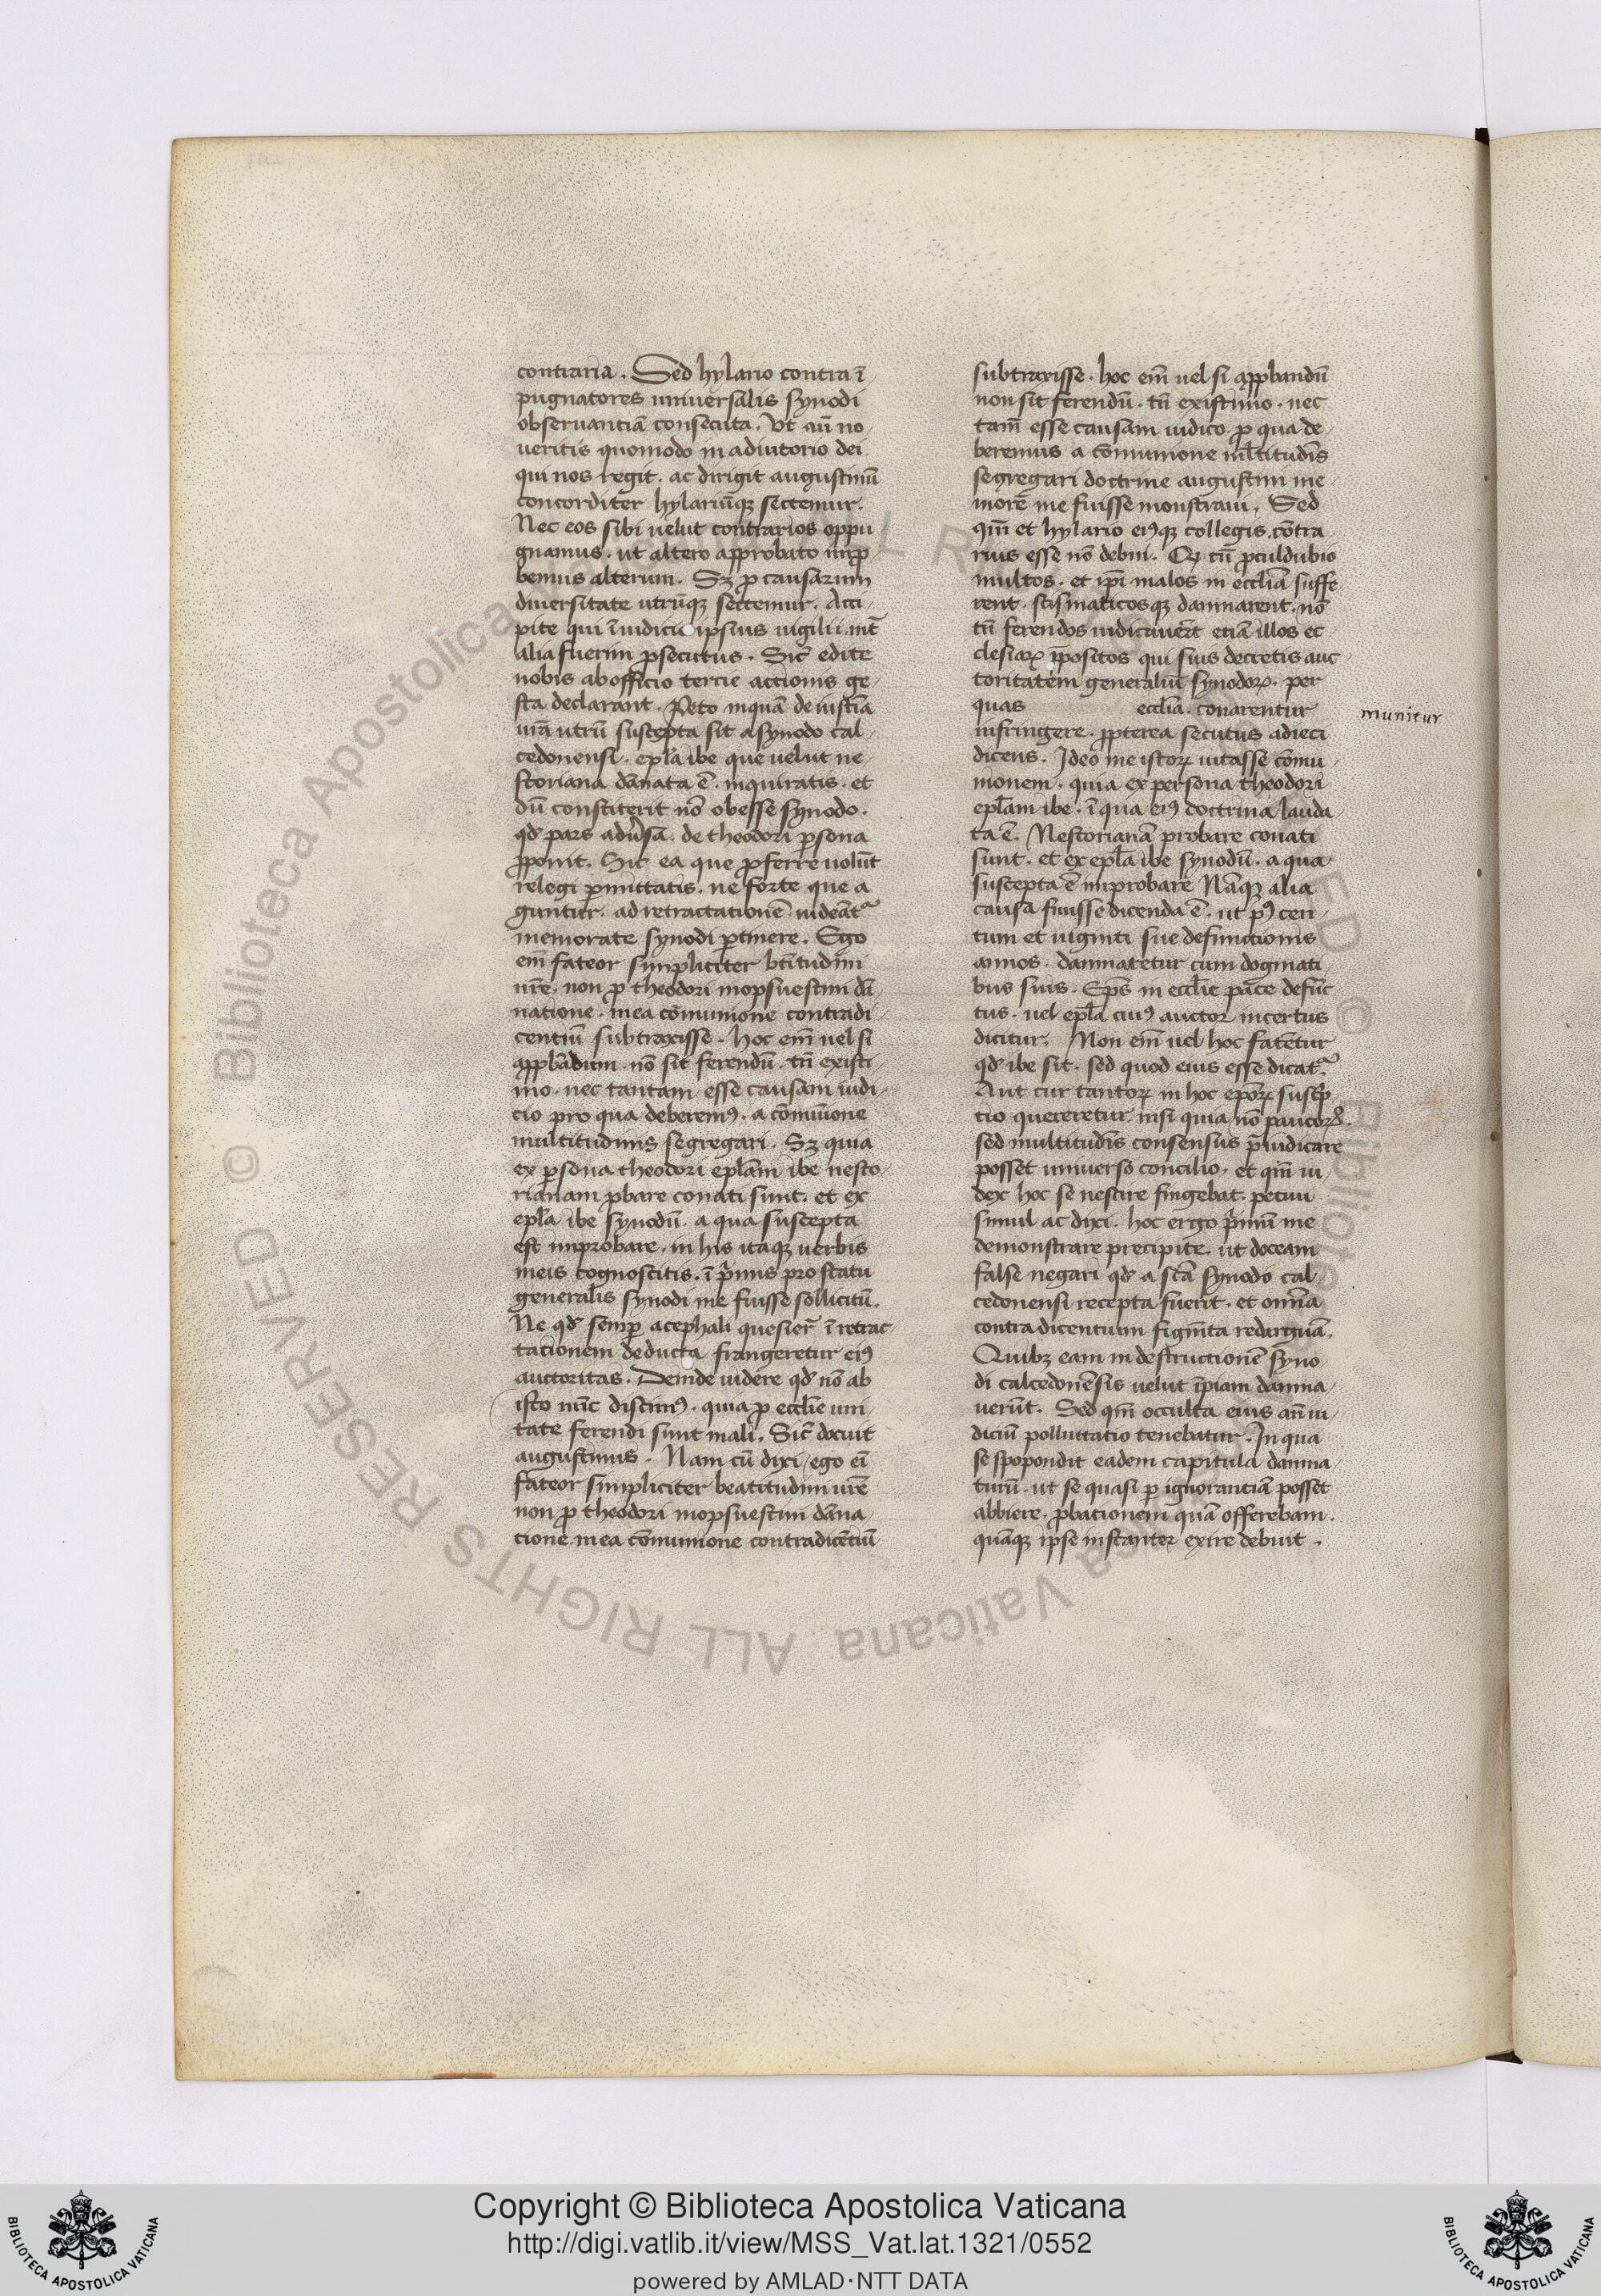 contraria. Sed hylario contra ī
pugnatores universalis synodi
observantiā consecuta. Vt aūt no
veritis quomodo in adiutorio dei
qui nos regit. ac dirigit augustinū
concorditer hylariūqꝫ sectemur.
Nec eos sibi velut contrarios oppu
gnamus. ut altero approbato impro
bemus alterum. Sꝫ ꝓ causarum
diversitate utrūqꝫ sectemur. Acci
pite qui ī iudicio ipsius vigilii int̄
alia fuerim ꝓsecutus. Sic̄ edite
nobis ab officio tercie actionis ge
sta declarant. Peto inquā de iusticīa
vr̄a utrū suscepta sit a synodo cal
cedonensi. epl̄a ibe que velut ne
storiana dānata ē. inquiratis. et
dū constiterit nō obesse synodo.
qd̄ pars adv̄sa. de theodori ꝑsona
ꝓponit. Sic ea que ꝓferre volūt
relegi ꝑmittatis. ne forte que a
guntur. ad retractationē videāt᷑
memorate synodi ꝑtinere. Ego
em̄ fateor simpliciter bt̄itudini
vr̄e. non ꝓ theodori mopsuestini dā
natione. mea cōmunione contradi
centiū subtraxisse. hoc em̄ vel si
apꝓbādum nō sit ferendū. tn̄ existi
mo. nec tantam esse causam iudi
cio pro qua deberemꝰ. a cōmūione
multitudinis segregari. Sꝫ quia
ex ꝑsona theodori epl̄am ibe nesto
rianam ꝓbare conati sunt. et ex
epl̄a ibe synodū. a qua suscepta
est improbare. in his itaqꝫ verbis
meis cognoscitis. ī p̄mis pro statu
generalis synodi me fuisse sollicitū.
Ne qd̄ semꝑ acephali quesier̄ ī retrac
tationem deducta frangeretur eiꝰ
auctoritas. Deinde videre qd̄ nō ab
isto nūc discimꝰ. quia ꝓ eccl̄ie uni
tate ferendi sunt mali. Sic̄ docuit
augustinus. Nam cū dixi ego ei̅
fateor simpliciter beatitudini vr̄e
non ꝓ theodori mopsuestini dāna
tione mea cōmunione contradicētiū
subtraxisse. hoc em̄ vel si apꝓbandū
non sit ferendū. tn̄ existimo. nec
tam̄ esse causam iudico ꝓ qua de
beremus a cōmunione ml̄titudīs
segregari doctrine augustini me
morē me fuisse monstravi. Sed
qm̄ et hylario eiꝰqꝫ collegis cōtra
rius esse nō debui. Qꝫ cū ꝓculdubio
multos. et ip̄i malos in eccl̄ia suffe
rent. scismaticosqꝫ damnarent. nō
tn̄ ferendos iudicaver̄t etiā illos ec
clesiaꝝ p̄positos qui suis decretis auc
toritatem generaliū synodoꝝ. per
quas ecclīa. conarentur
munitur
infringere. ꝓpterea secutus adieci
dicens. Ideo me istoꝝ vitasse cōmu
nionem. quia ex persona theodori
epl̄am ibe. ī qua eiꝰ doctrina lauda
ta ē. Nestorianā probare conati
sunt. et ex epl̄a ibe synodū. a qua
suscepta ē improbare Nāqꝫ alia
causa fuisse dicenda ē. ut pꝰ cen
tum et viginti sue defunctionis
annos. damnaretur cum dogmati
bus suis. Ep̄s in eccl̄ie pace defūc
tus. vel epl̄a cuiꝰ auctor incertus
dicitur. Non em̄ vel hoc fatentur
qd̄ ibe sit. sed quod eius esse dicat᷑
Aut cur tantoꝝ in hoc ep̄oꝝ suscep
tio quereretur nisi quia nō paucoꝝ.
sed multitudīs consensus p̄iudicare
posset universo concilio. et qm̄ iu
dex hoc se nescire fingebat. petivi
simul ac dixi. hoc ergo p̄mū me
demonstrare precipite. ut doceam
false negari qd̄ a sc̄a synodo cal
cedonensi recepta fuerit. et om̄ia
contradicentium figm̄ta redarguā.
Quibꝫ eam in destructionē syno
di calcedonēsis velut īpiam damna
verūt. Sed qm̄ occulta eius an̄ iu
diciū pollutatio tenebatur. In qua
se spopondit eadem capitula damna
turū. ut se quasi ꝑ ignorantiā posset
abbiere. ꝓbationem quā offerebam.
quāqꝫ ipse instanter exire debuit.
Copyright © Biblioteca Apostolica Vaticana
http://digi.vatlib.it/view/MSS_Vat.lat.1321/0552
powered by AMLAD·NTT DATA
BIBLIOTECA APOSTOLICA VATICANA
BIBLIOTECA APOSTOLICA VATICANA